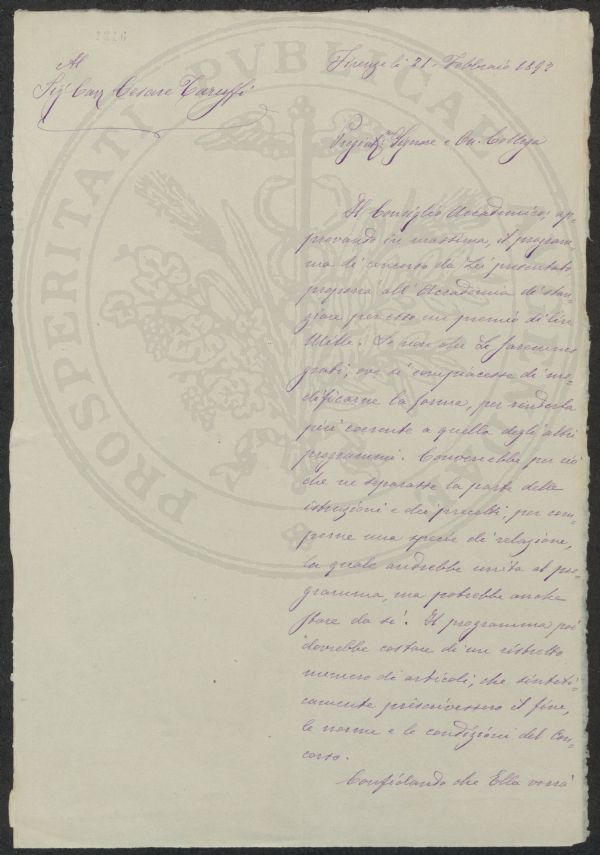 Al
Sig Cav Cesare Taruffi
Firenze li 21 Febbraio 1892
Pregiat: Signore e On. Collega
Il Consiglio Accademico, ap-
provando in massima, il program-
ma di concorso da Lei presentato
proporrà all' Accademia di stan-
ziare per esso un premio di lire
Mille. Se non che Le saremmo
grati, ove si compiacesse di mo-
dificarne la forma, per renderla
più coerente a quella degli altri
programmi. Converrebbe per ciò
che ne separasse la parte delle
istruzioni e dei precetti, per com-
porne una specie di relazione,
la quale andrebbe unita al pro-
gramma, ma potrebbe anche
stare da sè. Il programma poi
dovrebbe costare di un ristretto
numero di articoli, che sinteti-
camente prescrivessero il fine,
le norme e le condizioni del Con-
corso.
Confidando che Ella vorrà
PROSPERITATI PVBLICAE